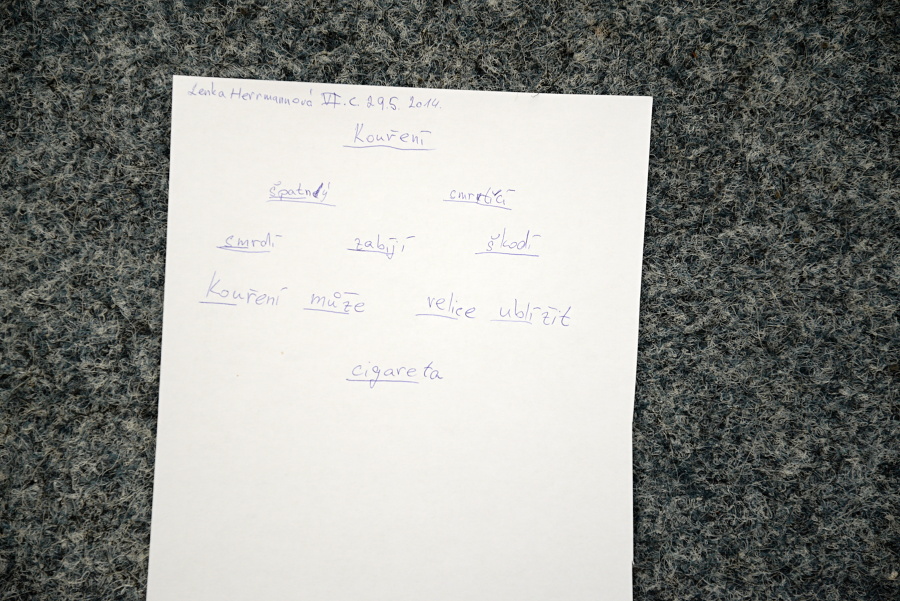 Lenka Herrmannová VI. C. 29.5. 2014.
Kouření
špatný smrtící
smrdí zabíjí škodí
Kouření může velice ublížit
cigareta